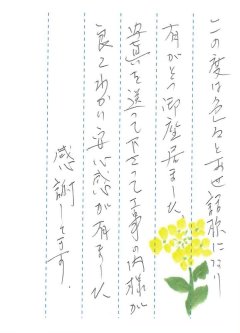 この度は色々とお世話になり
有がとう御座居ました
写真を送って下さって工事の内様が
良くわかり安心感が有ました
感謝してます。